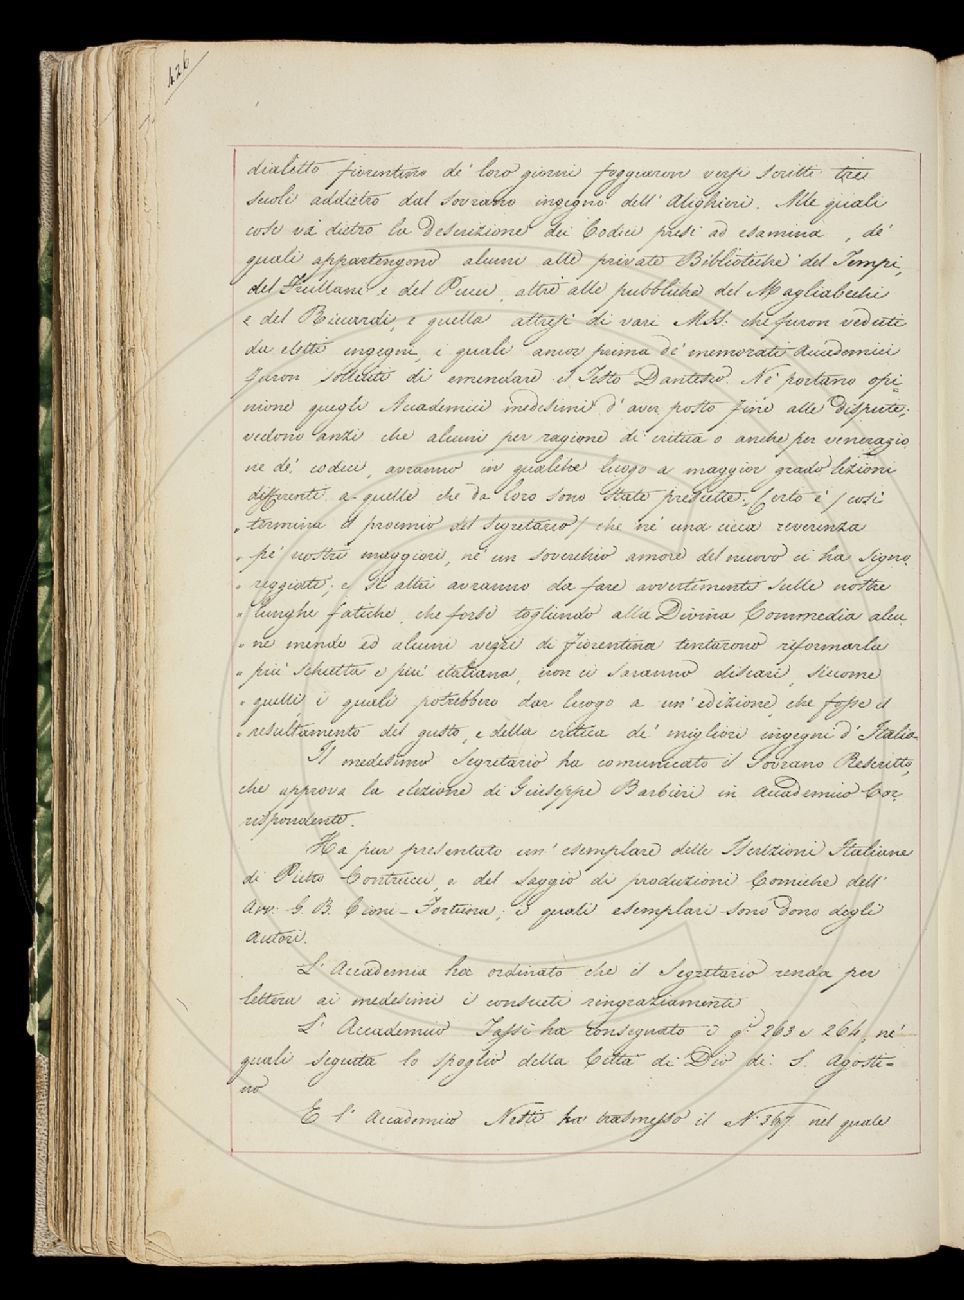 426
dialetto fiorentino de' loro giorni foggiaron versi scritti tre
secoli addietro dal sovrano ingegno dell' Alighieri. Alle quali
cose và dietro la Descrizione dei Codici presi ad esamina, de'
quali appartengono alcuni alle private Biblioteche del Tempi,
del Frullani e del Pucci, altri alle pubbliche del Magliabechi
e del Riccardi, e quella altresì di vari MSS. che furon veduti
da eletti ingegni, i quali ancor prima de' memorati Accademici
furon solleciti di emendare il Testo Dantesco. Nè portano opi=
nione quegli Accademici medesimi d' aver posto fine alle dispute;
vedono anzi che alcuni per ragione di critica o anche per venerazio
ne de' codici, avranno in qualche luogo a maggior grado lezioni
differenti a quelle che da loro sono state prescelte. Certo è / così
" termina il proemio del Segretario / che nè una cieca reverenza
" pe' nostri maggiori, nè un soverchio amore del nuovo ci ha signo
" reggiati; e se altri avranno da fare avvertimenti sulle nostre
" lunghe fatiche, che forse togliendo alla Divina Commedia alcu
" ne mende ed alcuni vezzi di fiorentina tentarono riformarla
" più schietta e più italiana, non ci saranno discari, siccome
" quelli i quali potrebbero dar luogo a un' edizione, che fosse il
" resultamento del gusto, e della critica de' migliori ingegni d' Italia.
Il medesimo Segretario ha comunicato il Sovrano Rescritto,
che approva la elezione di Giuseppe Barbieri in Accademico Cor=
respondente.
Ha pur presentato un' esemplare delle Iscrizioni Italiane
di Pietro Contrucci, e del Saggio di produzioni Comiche dell'
Avv. G. B. Cioni-Fortuna; i quali esemplari sono dono degli
Autori.
L' Accademia ha ordinato che il Segretario renda per
lettera ai medesimi i consueti ringraziamenti
L' Accademico Tassi ha consegnato i q.i 263 e 264, ne'
quali seguita lo spoglio della Città di Dio di S. Agosti=
no
E l' Accademico Nesti ha trasmesso il N. 367 nel quale